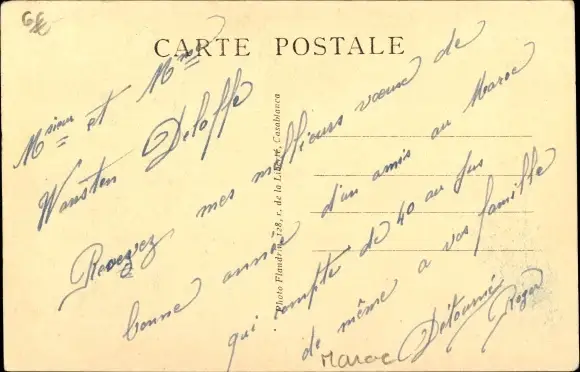 CARTE POSTALE
Msieur et Mme
Wansten Deloffe
Recevez mes meilleurs vœux de
bonne année d'un amis au Maroc
qui compte de 40 au jus
de même a vos famille
Détourné
Roger
Maroc
Photo Flandrin, 128, r. de la Liberté, Casablanca